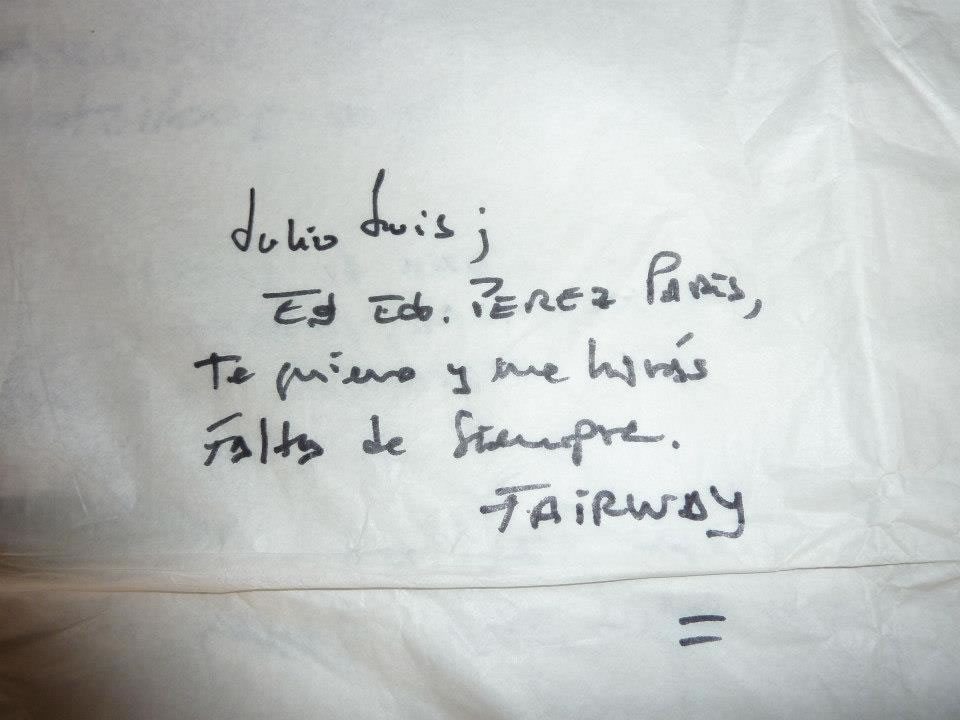 Julio Luis;
Ed Edo. PEREZ PARÍS,
Te quiero y me harás
falta de Siempre.
FAIRWAY
=